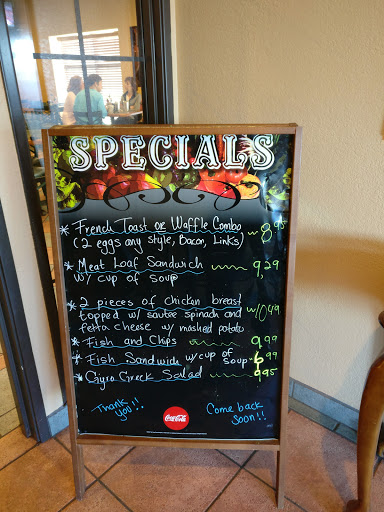 SPECIALS
* French Toast or Waffle Combo
(2 eggs any style, Bacon, Links) ~ 8.95
* Meat Loaf Sandwich ~~~ 9.29
w/ cup of soup
* 2 pieces of Chicken breast
topped w/ sautee spinach and ~10.49
fetta cheese w/ mashed potato
* Fish and Chips ~~~ 9.99
* Fish Sandwich w/ cup of soup - 6.99
* Gyro Greek Salad ~~~ 9.95
Thank you!!
Coca-Cola
Come back soon!!